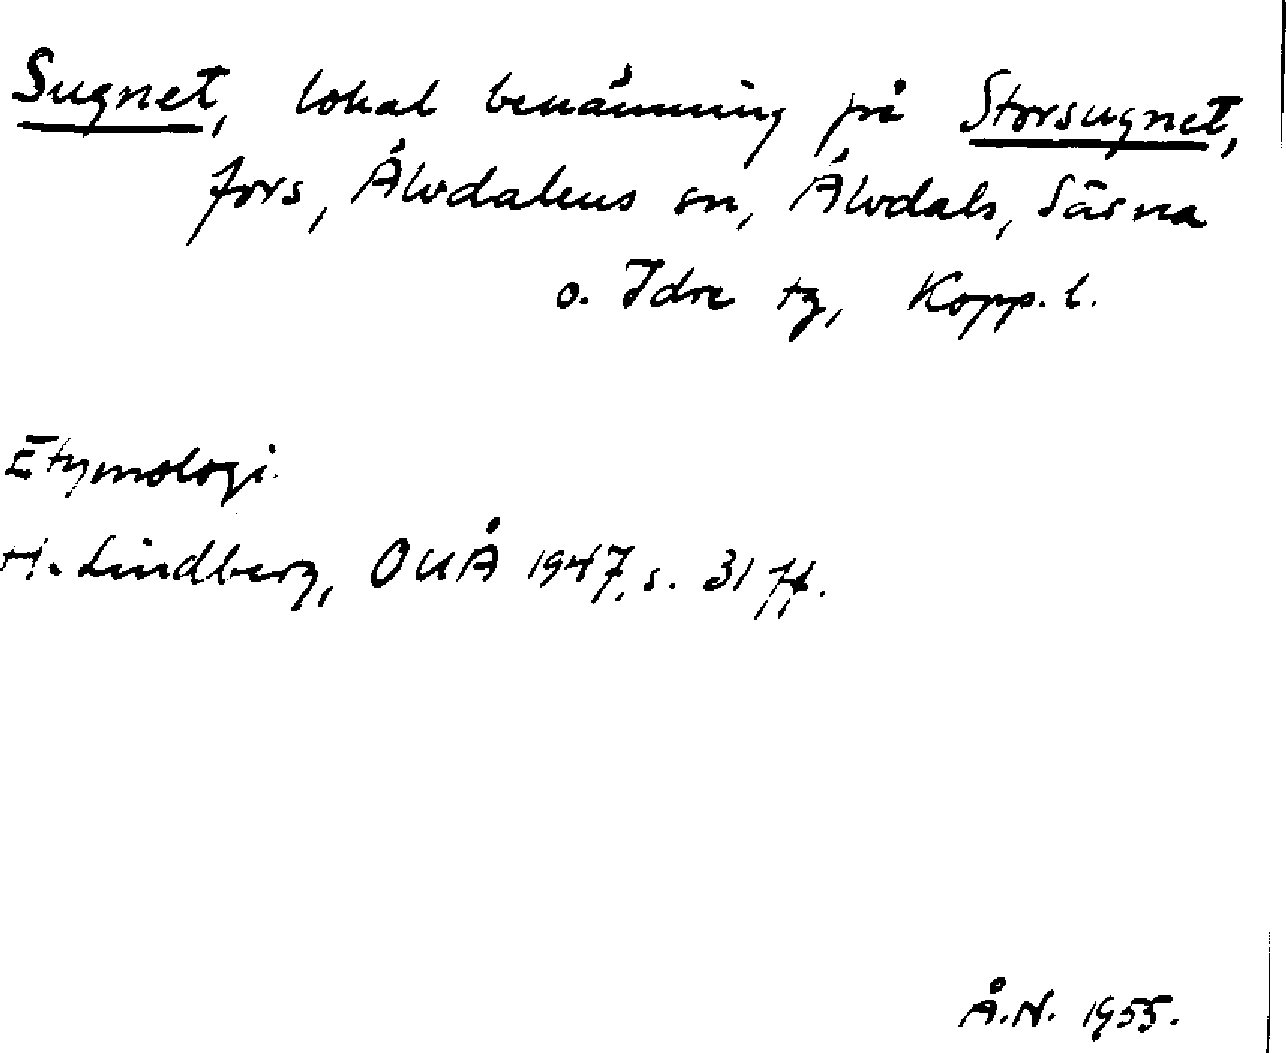 Sugnet, lokal benämning på Storsugnet,
fors, Älvdalens sn, Älvdals, Särna
o. Idre tg, Kopp. l.
Etymologi.
H. Lindberg, OUÅ 1947, s. 31 ff.
Å.N. 1955.